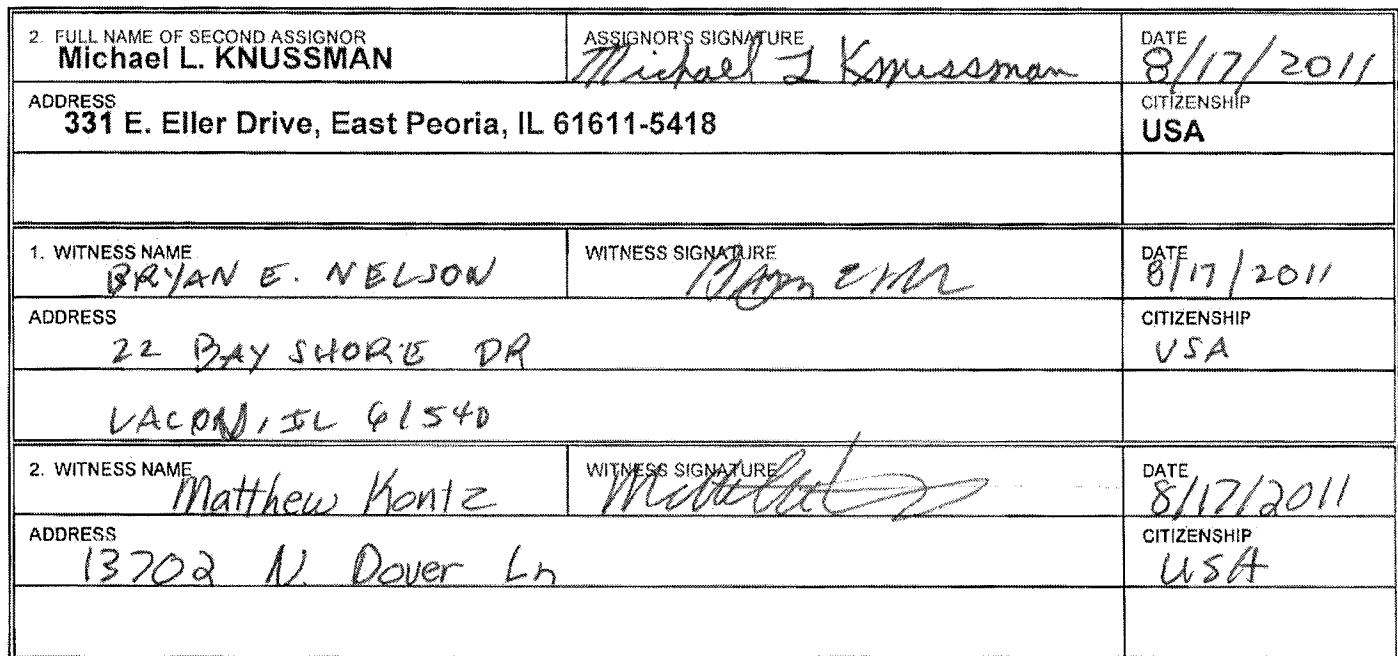 2. FULL NAME OF SECOND ASSIGNOR
Michael L. KNUSSMAN
ASSIGNOR'S SIGNATURE
Michael L Knussman
DATE
8/17/2011
ADDRESS
331 E. Eller Drive, East Peoria, IL 61611-5418
CITIZENSHIP
USA
1. WITNESS NAME
BRYAN E. NELSON
WITNESS SIGNATURE
DATE
8/17/2011
ADDRESS
22 BAY SHORE DR
CITIZENSHIP
USA
LACON, IL 61540
2. WITNESS NAME
Matthew Kontz
WITNESS SIGNATURE
DATE
8/17/2011
ADDRESS
13702 N. Dover Ln
CITIZENSHIP
USA